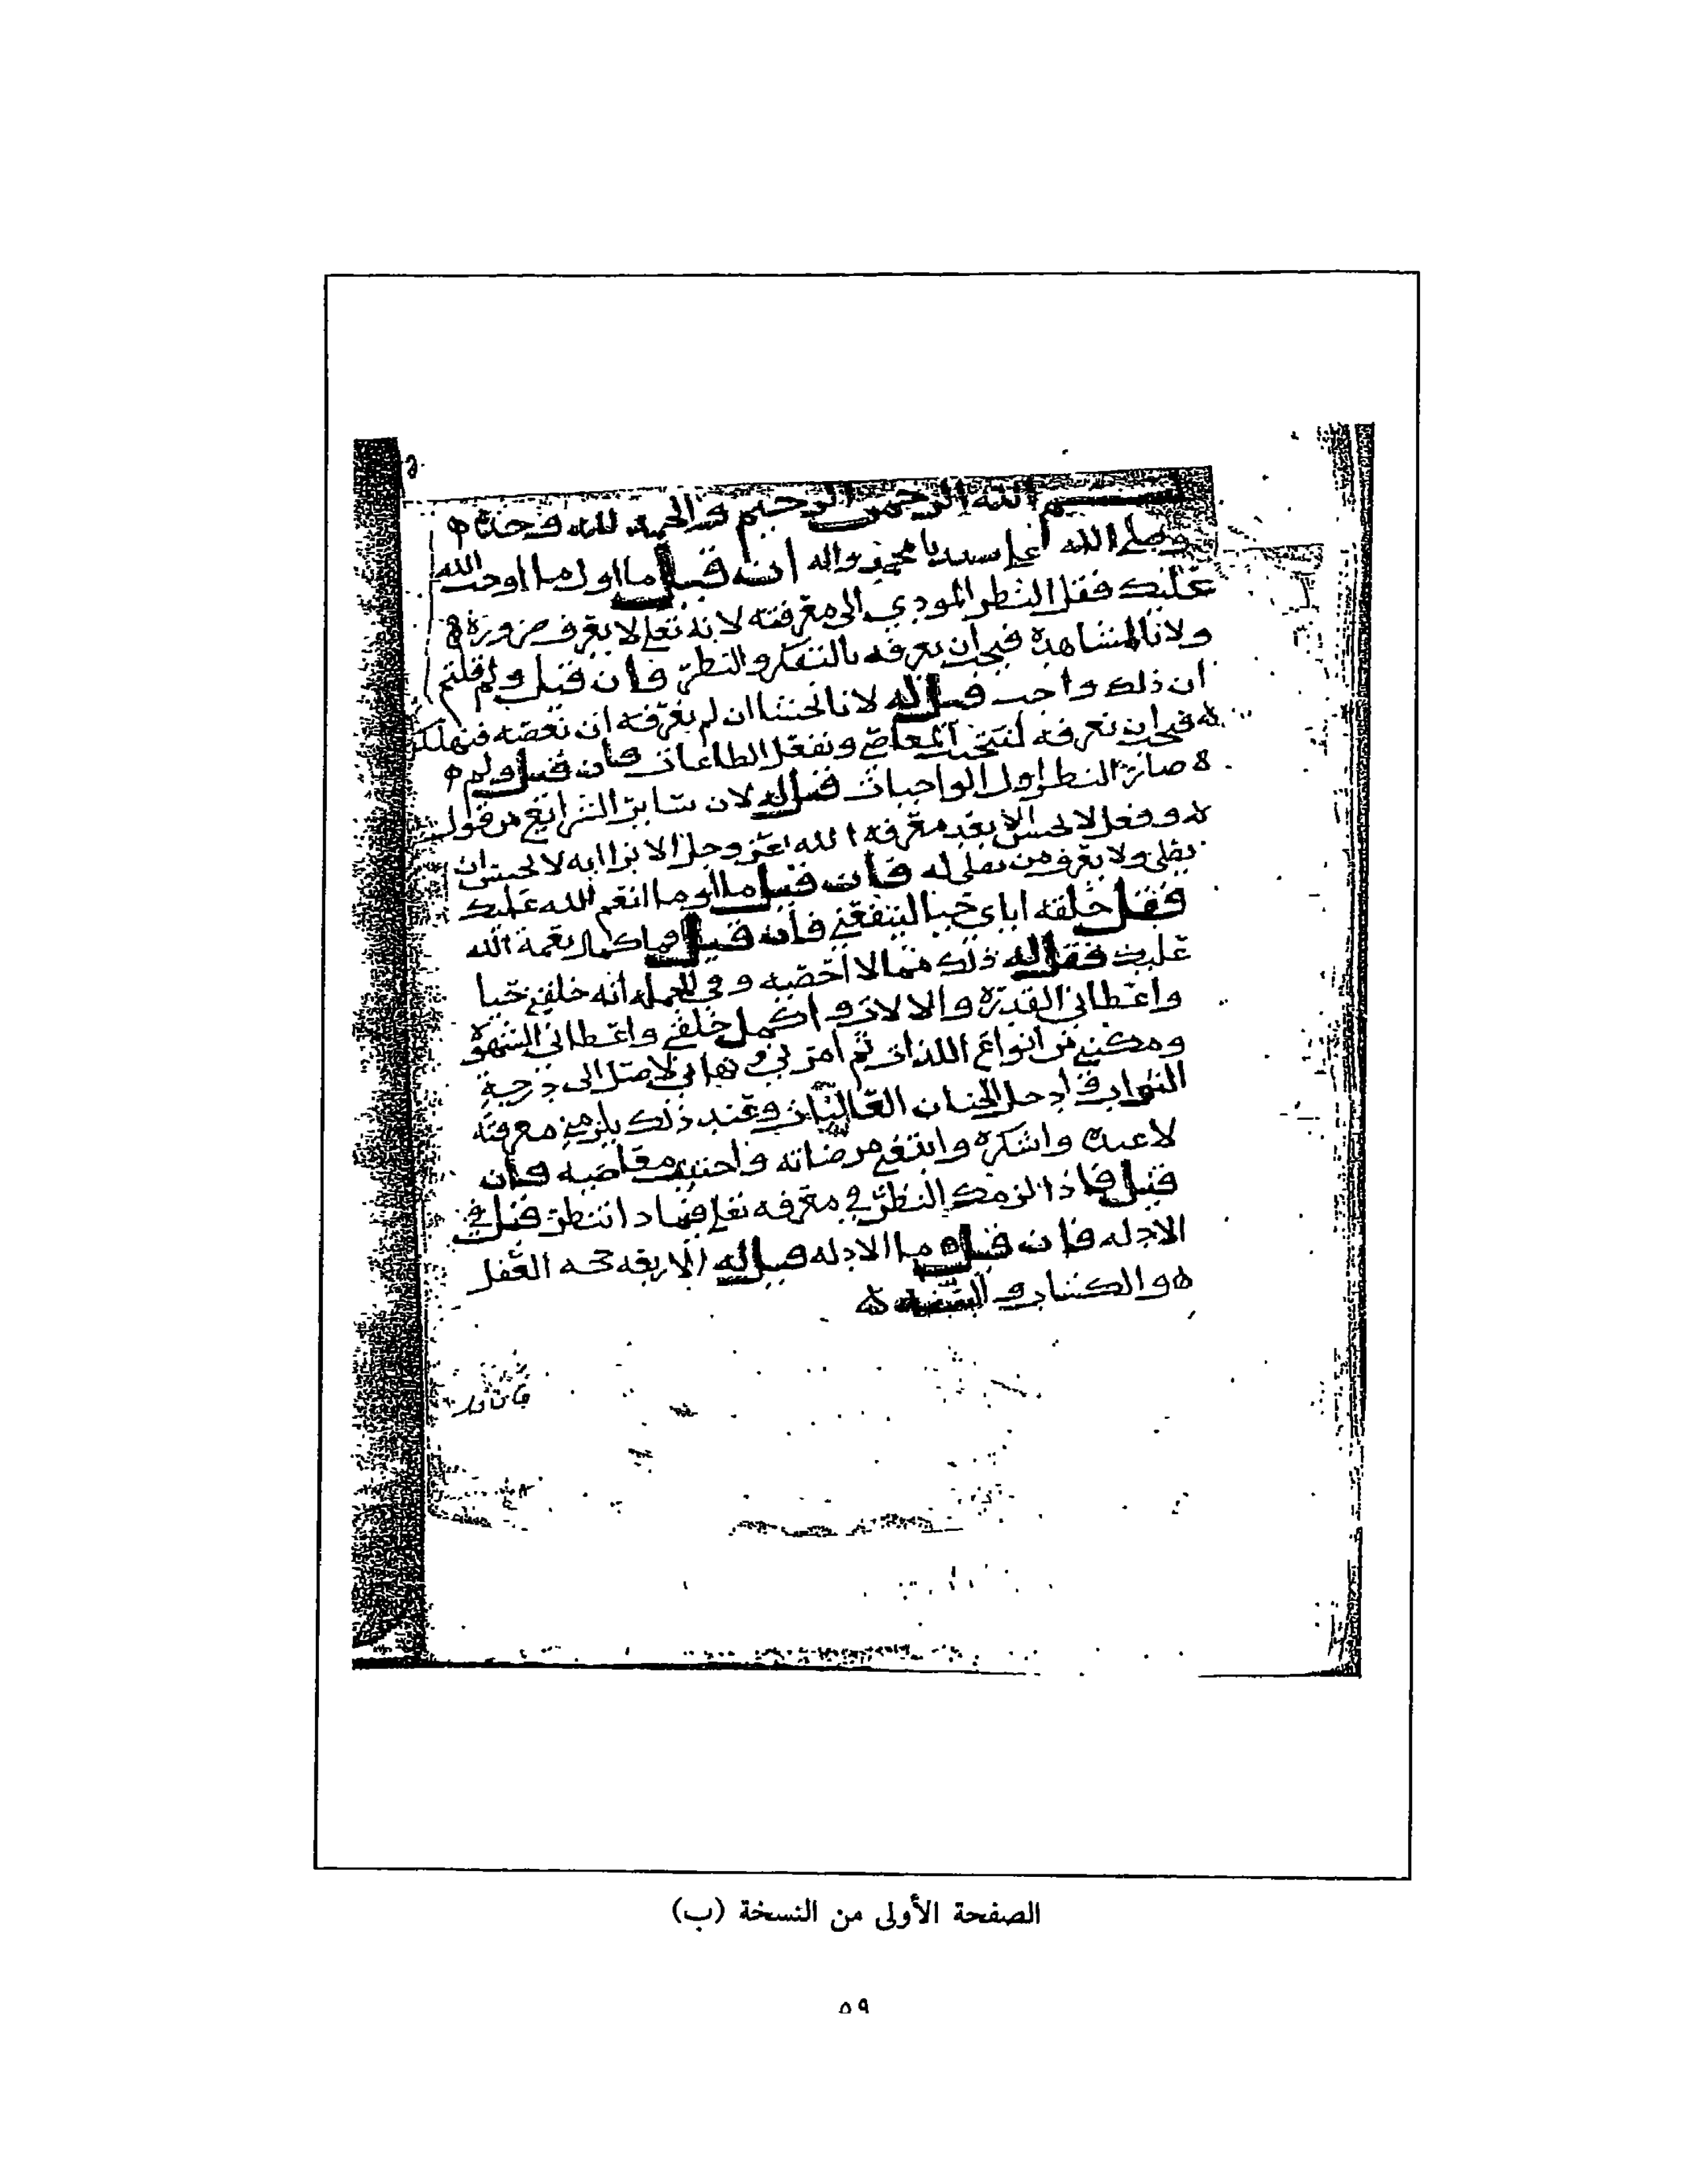 بسم الله الرحمن الرحيم والحمد لله وحده
وصلى الله على سيدنا محمد واله ان قيل ما اول ما اوجب الله
عليك فقل النظر المودي الى معرفته لانه تعلى لا يعرف ضرورة
ولا بالمشاهدة فيجب ان نعرفه بالتفكر والنظر فان قيل ولم قلتم
ان ذلك واجب قيل له لانا نخشا ان لم نعرفه ان نعصه فنهلك
فيجب ان نعرفه لنتجنب المعاصي ونفعل الطاعات فان قيل ولم
صار النظر اول الواجبات قيل له لان سائر الشرائع من قول
وفعل لا يحسن الا بعد معرفة الله عز وجل الا ترا انه لا يحسن ان
يصلي ولا يعرف من يصلي له فان قيل ما اول ما انعم الله عليك
فقل خلقه اياي حيا لينفعني فان قيل فما كمال نعمة الله
عليك فقل له ذلك مما لا احصيه وفي الجملة انه خلقني حيا
واعطاني القدرة والالات واكمل خلقي واعطاني الشهوة
ومكنني من انواع اللذات ثم امرني ونهاني لاصل الى درجة
الثواب وادخل الجنان العاليات وعند ذلك يلزمني معرفته
لاعبده واشكره وابتغي مرضاته واجتنب معاصيه فان
قيل فاذا لزمك النظر في معرفه تعلى فبماذا تنظر قيل في
الادله فان قيل ما الادله قيل له الاربعه حجه العقل
والكتاب والسنه
الصفحة الأولى من النسخة (ب)
٥٩